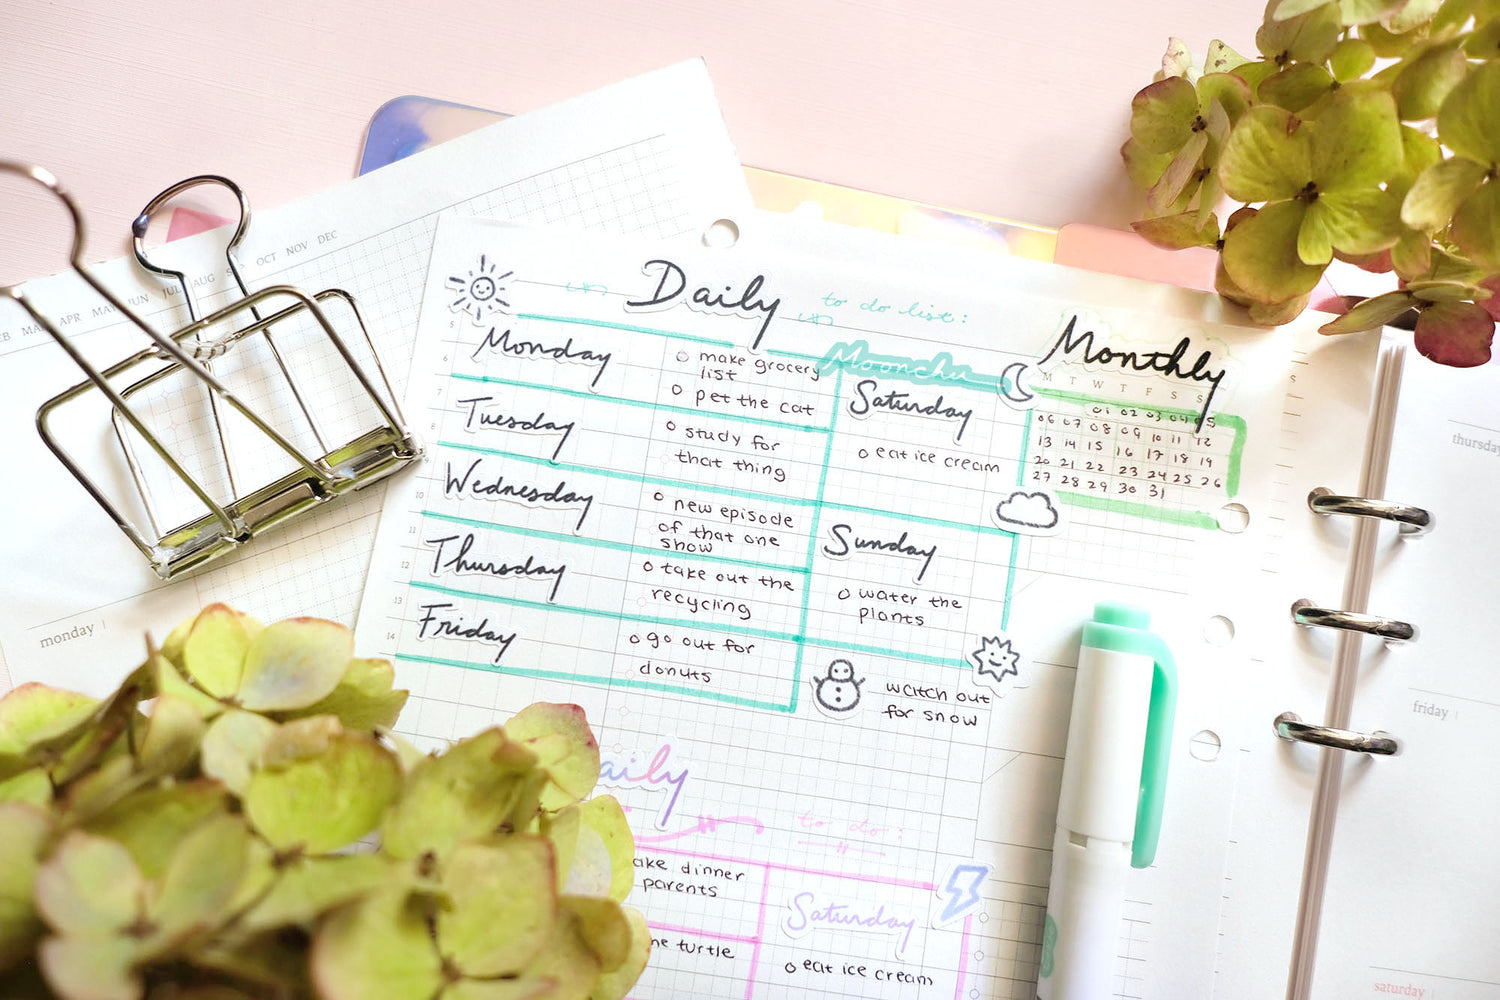 APR
JUN
JUL
AUG
OCT
NOV
DEC
monday
Daily
to do list:
Monday
make grocery
list
pet the cat
Tuesday
study for
that thing
Wednesday
new episode
of that one
show
Thursday
take out the
recycling
Friday
go out for
donuts
Saturday
eat ice cream
Sunday
water the
plants
watch out
for snow
5
6
7
8
10
11
12
13
14
Monthly
M T W T F S S
01 02 03 04 05
06 07 08 09 10 11 12
13 14 15 16 17 18 19
20 21 22 23 24 25 26
27 28 29 30 31
S
aily
to do:
ake dinner
parents
he turtle
Saturday
eat ice cream
thursday
friday
saturday